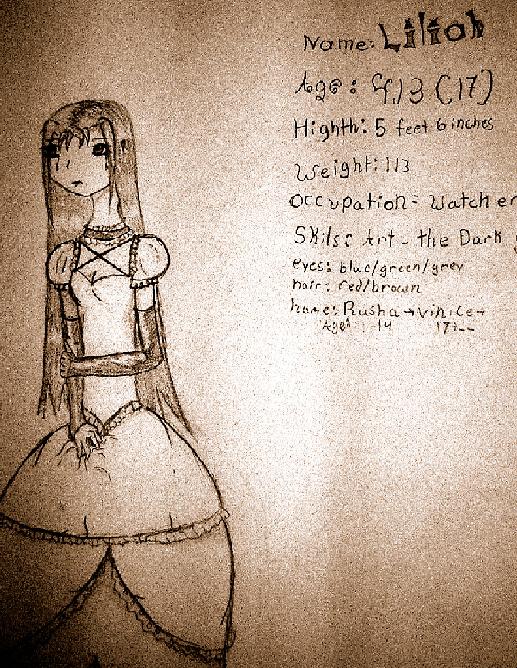 Name: Liliah
Age: 413 (17)
Highth: 5 feet 6 inches
Weight: 113
Occupation - Watcher
Skils: Art - the Dark
eyes: blue/green/grey
hair: red/brown
home: Rusha → Vinice →
Age: 1-14 17--